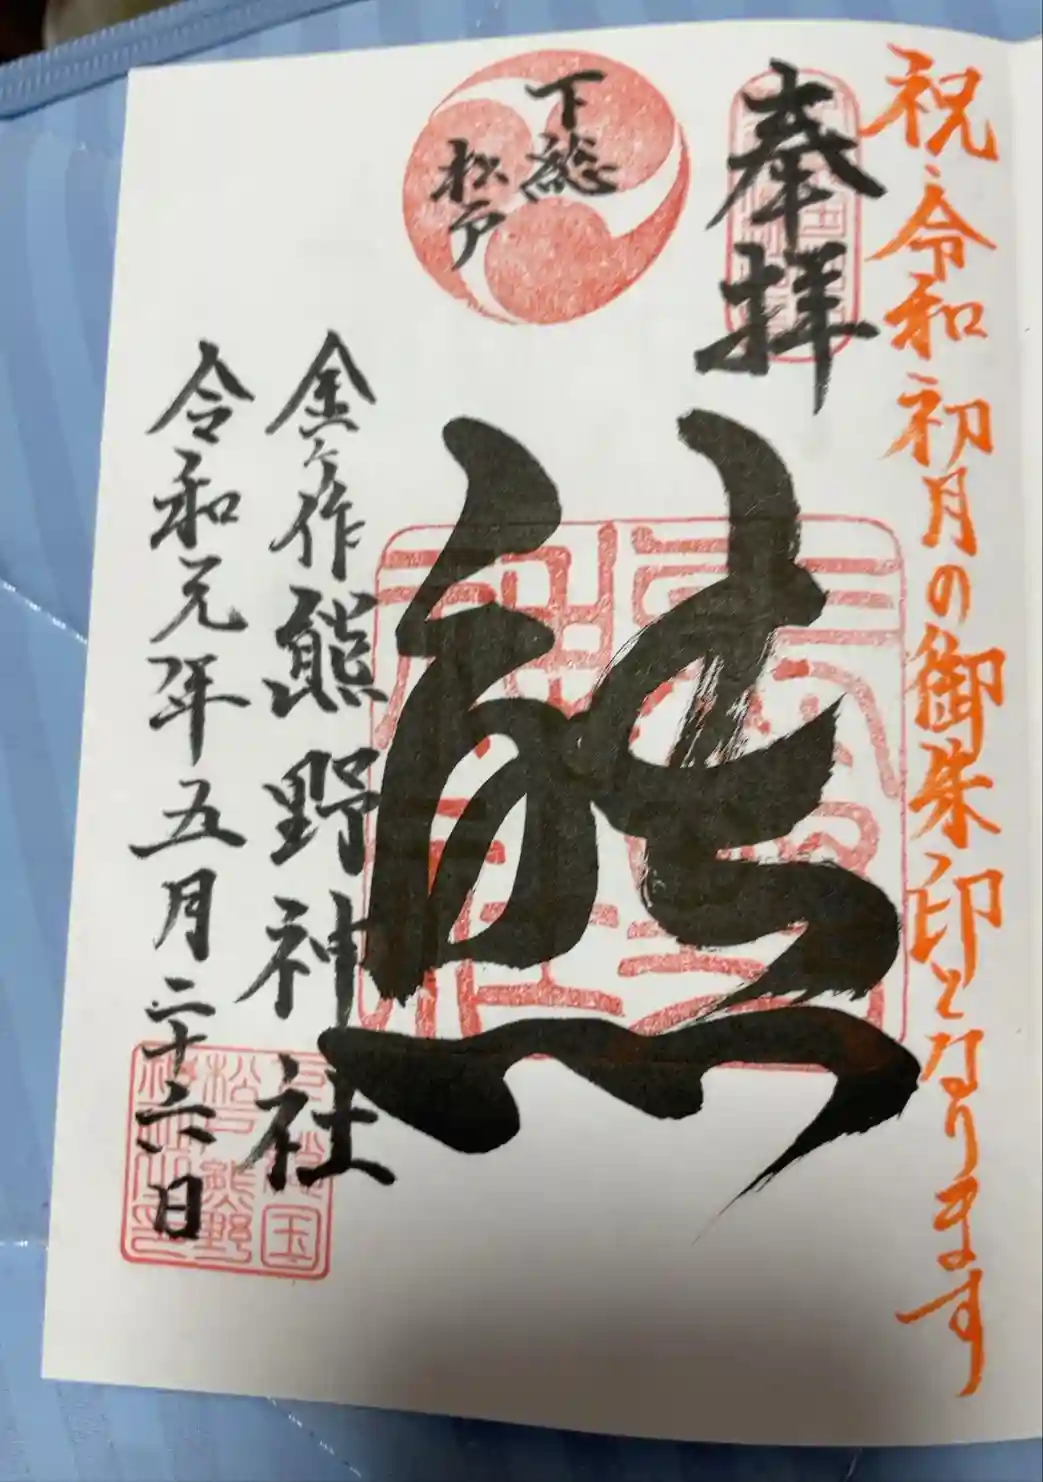 祝、令和初月の御朱印となります
奉拝
下総
松戸
熊
金ヶ作熊野神社
令和元年五月二十六日